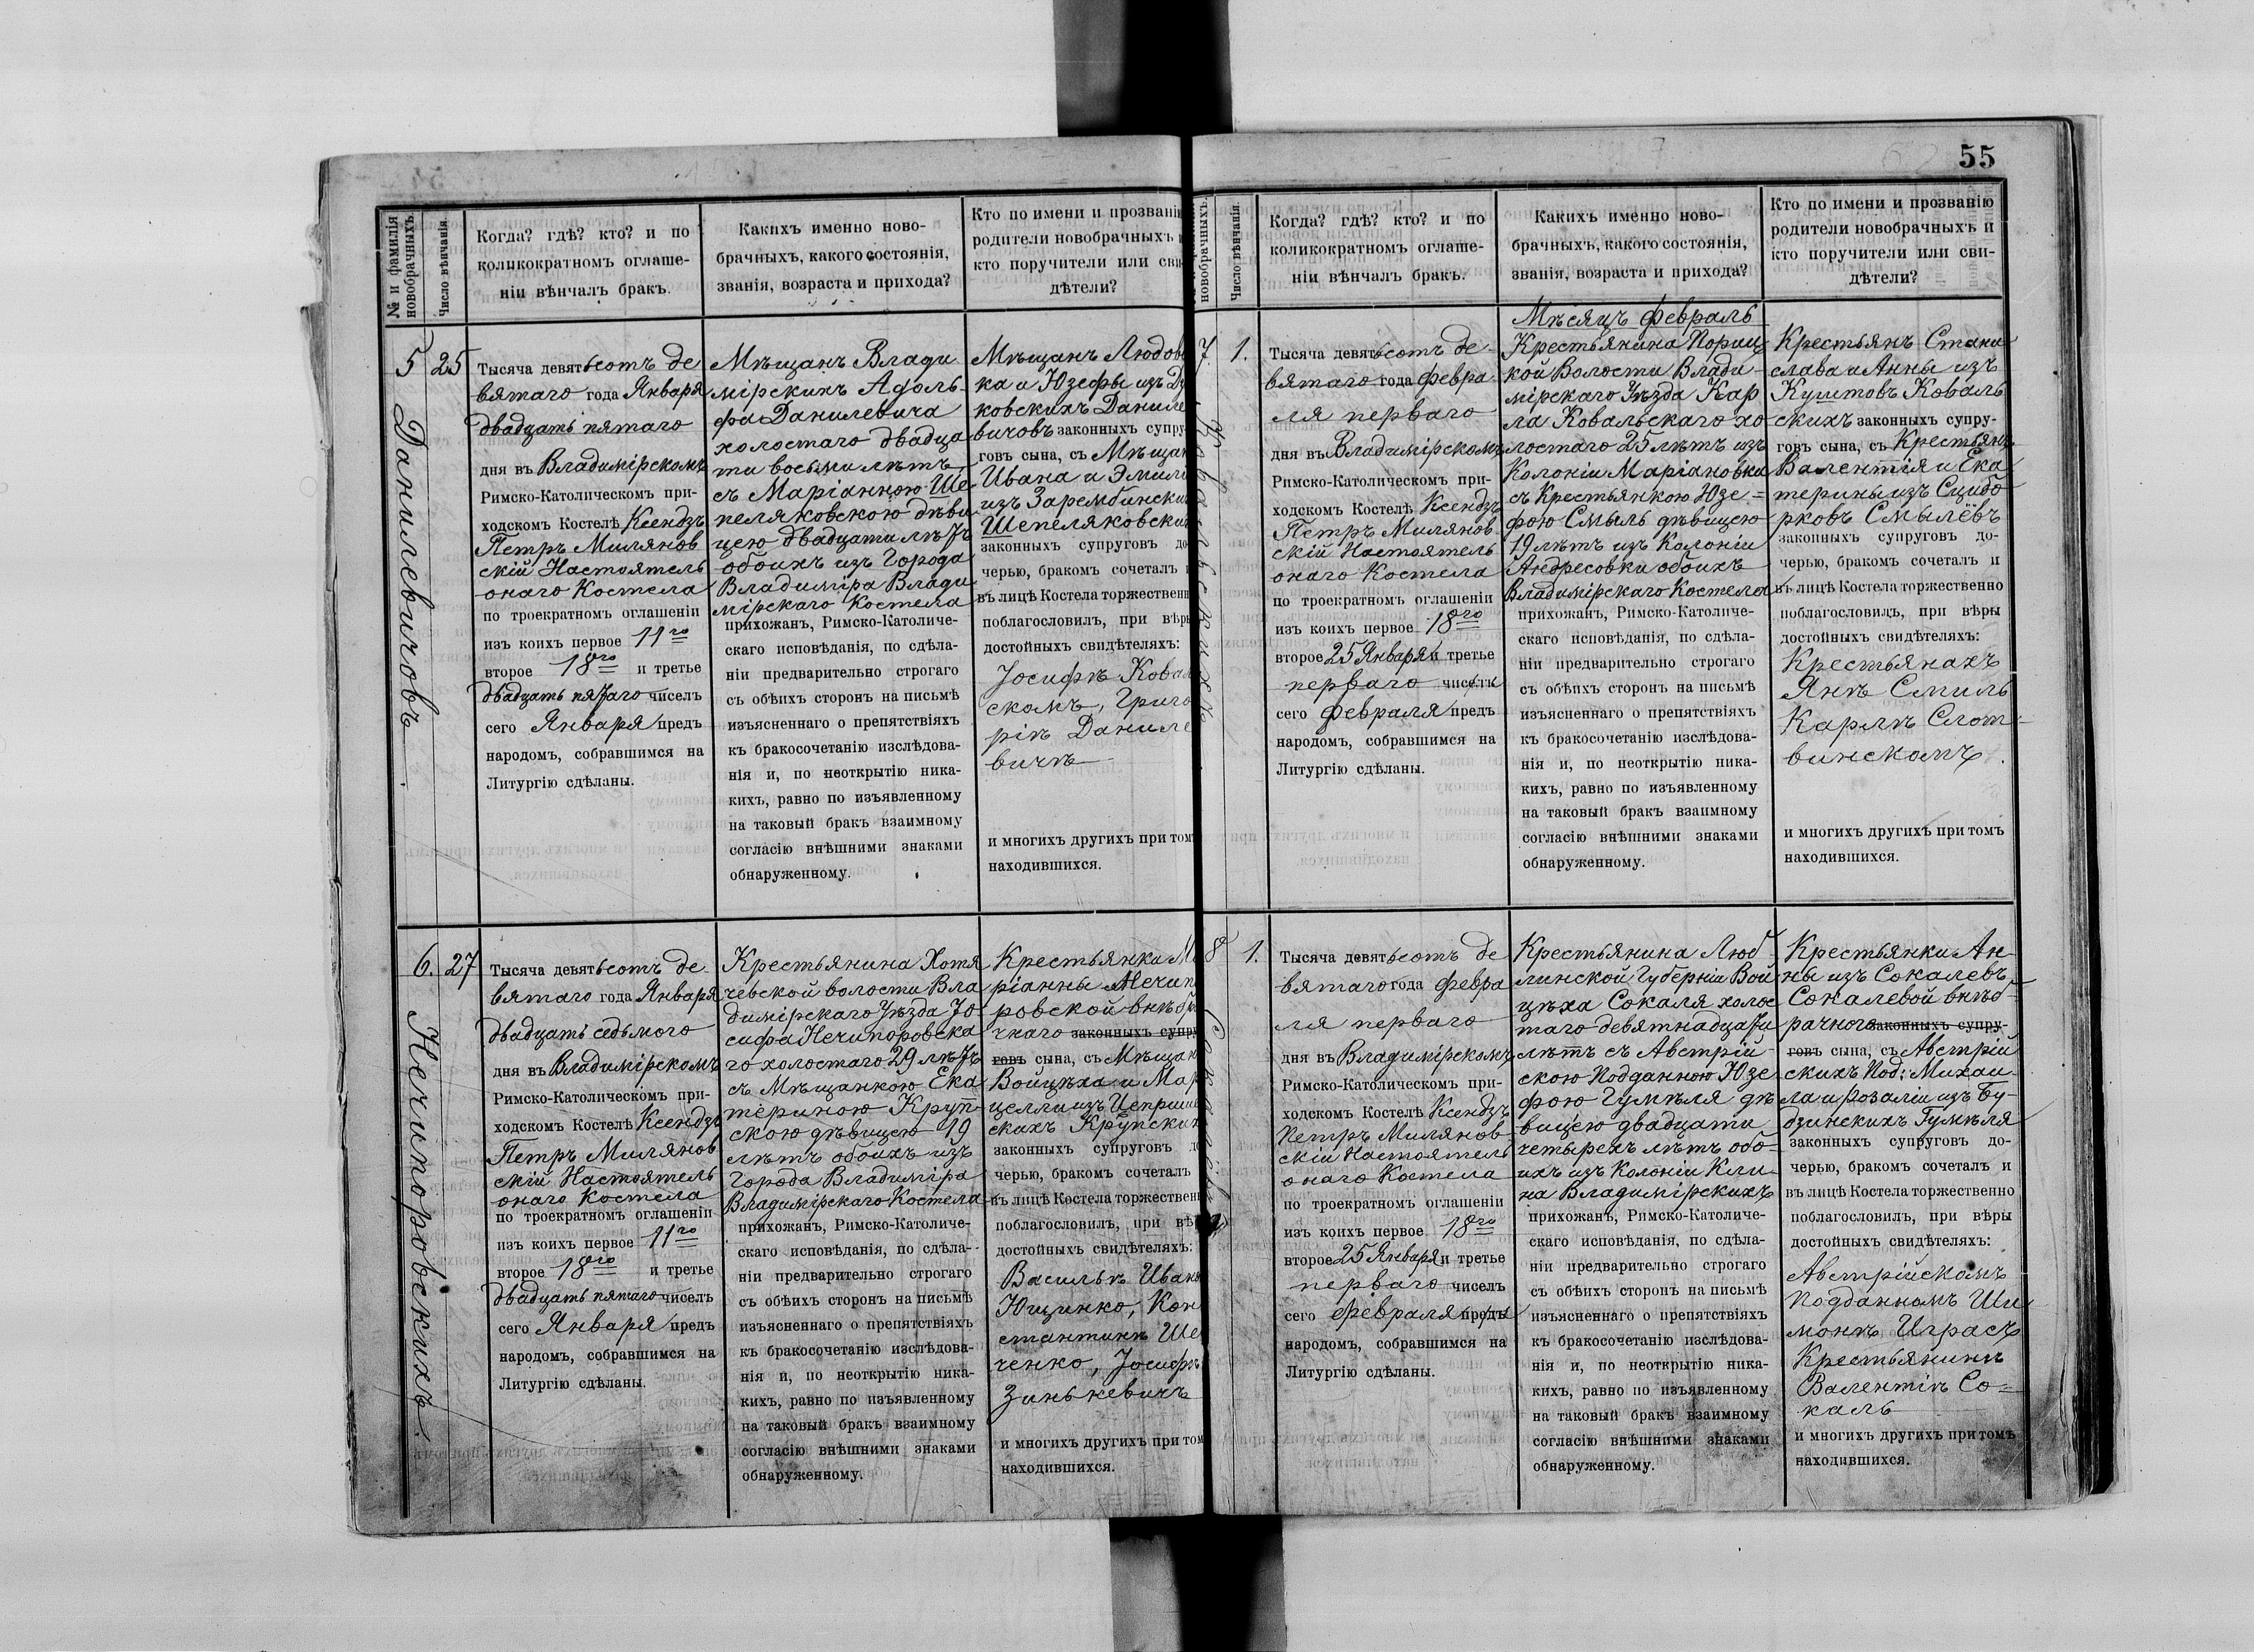 55
№ и фамилія новобрачныхъ.
Число вѣнчанія.
Когда? гдѣ? кто? и по
коликократномъ оглаше-
ніи вѣнчалъ бракъ.
Какихъ именно ново-
брачныхъ, какого состоянія,
званія, возраста и прихода?
Кто по имени и прозванію
родители новобрачныхъ
кто поручители или сви-
дѣтели?
5
Данилевичовъ.
25
Тысяча девятьсотъ де
вятаго года Января
двадцать пятаго
дня въ Владимірскомъ
Римско-Католическомъ при-
ходскомъ Костелѣ Ксендзъ
Петръ Милянов
скій Настоятель
онаго Костела
по троекратномъ оглашеніи
изъ коихъ первое 11го
второе 18го и третье
двадцать пятаго чиселъ
сего Января предъ
народомъ, собравшимся на
Литургію сдѣланы.
Мѣщанъ Влади
мірскихъ Адоль-
фа Данилевича
холостаго двадца
ти восьми лѣтъ
съ Маріанною Ше
пеляковскою дѣви
цею двадцати лѣтъ
обоихъ изъ Города
Владиміра Влади
мірскаго Костела
прихожанъ, Римско-Католиче-
скаго исповѣданія, по сдѣла-
ніи предварительно строгаго
съ обѣихъ сторонъ на письмѣ
изъясненнаго о препятствіяхъ
къ бракосочетанію изслѣдова-
нія и, по неоткрытію ника-
кихъ, равно по изъявленному
на таковый бракъ взаимному
согласію внѣшними знаками
обнаруженному.
Мѣщанъ Людов
ка и Юзефы изъ
ковскихъ Даниле
вичовъ законныхъ супру
говъ сына, съ Мѣщан
Ивана и Эмил
изъ Зарембински
Шепеляковски
законныхъ супруговъ до
черью, бракомъ сочеталъ и
въ лицѣ Костела торжествен
поблагословилъ, при вѣр
достойныхъ свидѣтеляхъ:
Іосифѣ Ковал
скомъ, Григо
ріѣ Даниле
вичѣ
и многихъ другихъ при том
находившихся.
6.
Нечипоровскихъ.
27
Тысяча девятьсотъ де-
вятаго года Января
двадцать седьмого
дня въ Владимірскомъ
Римско-Католическомъ при-
ходскомъ Костелѣ Ксендзъ
Петръ Милянов
скій Настоятель
онаго Костела
по троекратномъ оглашеніи
изъ коихъ первое 11го
второе 18го и третье
двадцать пятаго чиселъ
сего Января предъ
народомъ, собравшимся на
Литургію сдѣланы.
Крестьянина Хотя
чевской волости Вла
димірскаго Уѣзда Іо
сифа Нечипоровска
го холостаго 29 лѣтъ
съ Мѣщанкою Ека
териною Круп-
скою дѣвицею 19
лѣтъ обоихъ изъ
Города Владиміра
Владимірскаго Костела
прихожанъ, Римско-Католиче-
скаго исповѣданія, по сдѣла-
ніи предварительно строгаго
съ обѣихъ сторонъ на письмѣ
изъясненнаго о препятствіяхъ
къ бракосочетанію изслѣдова-
нія и, по неоткрытію ника-
кихъ, равно по изъявленному
на таковый бракъ взаимному
согласію внѣшними знаками
обнаруженному.
Крестьянки Ма
ріанны Нечип
ровской внѣбра
чнаго законныхъ супру
говъ сына, съ Мѣщан
Войцѣха и Мар
целли изъ
скихъ Крупских
законныхъ супруговъ до
черью, бракомъ сочеталъ
въ лицѣ Костела торжествен
поблагословилъ, при вѣ
достойныхъ свидѣтеляхъ:
Васильѣ Иван
Ющинко, Кон
стантинѣ Ше
ченко, Іосифѣ
Зинькевичѣ
и многихъ другихъ при том
находившихся.
новобрачныхъ.
Число вѣнчанія.
Когда? гдѣ? кто? и по
коликократномъ оглаше-
ніи вѣнчалъ бракъ.
Какихъ именно ново-
брачныхъ, какого состоянія,
званія, возраста и прихода?
Кто по имени и прозванію
родители новобрачныхъ и
кто поручители или сви-
дѣтели?
Мѣсяцъ Февраль
7.
1.
Тысяча девятьсотъ де-
вятаго года Февра
ля перваго
дня въ Владимірскомъ
Римско-Католическомъ при-
ходскомъ Костелѣ Ксендзъ
Петръ Милянов-
скій Настоятель
онаго Костела
по троекратномъ оглашеніи
изъ коихъ первое 18го
второе 25 Января и третье
перваго числа
сего Февраля предъ
народомъ, собравшимся на
Литургію сдѣланы.
Крестьянина Пориц
кой Волости Влади-
мірскаго Уѣзда Кар
ла Ковальскаго хо
лостаго 25 лѣтъ изъ
Колоніи Маріановки
съ Крестьянкою Юзе=
фою Смыль дѣвицею
19 лѣтъ изъ Колоніи
Андресовки обоихъ
Владимірскаго Костела
прихожанъ, Римско-Католиче-
скаго исповѣданія, по сдѣла-
ніи предварительно строгаго
съ обѣихъ сторонъ на письмѣ
изъясненнаго о препятствіяхъ
къ бракосочетанію изслѣдова-
нія и, по неоткрытію ника-
кихъ, равно по изъявленному
на таковый бракъ взаимному
согласію внѣшними знаками
обнаруженному.
Крестьянъ Стани
слава и Анны изъ
Куштовъ Коваль
скихъ законныхъ супру-
говъ сына, съ Крестьянъ
Валентія и Ека
терины изъ Сцибо
рковъ Смылёвъ
законныхъ супруговъ до-
черью, бракомъ сочеталъ и
въ лицѣ Костела торжественно
поблагословилъ, при вѣры
достойныхъ свидѣтеляхъ:
Крестьянахъ
Янѣ Смиль
Карлѣ Слот-
винскомъ.
и многихъ другихъ при томъ
находившихся.
8
1.
Тысяча девятьсотъ де
вятаго года Февра
ля перваго
дня въ Владимірскомъ
Римско-Католическомъ при-
ходскомъ Костелѣ Ксендзъ
Петръ Милянов-
скій Настоятель
онаго Костела
по троекратномъ оглашеніи
изъ коихъ первое 18го
второе 25 Января и третье
перваго чиселъ
сего Февраля предъ
народомъ, собравшимся на
Литургію сдѣланы.
Крестьянина Люб
линской Губерніи Вой
цѣха Сокаля холос
таго девятнадцати
лѣтъ съ Австрій-
скою Подданною Юзе
фою Гумѣля дѣ
вицею двадцати
четырехъ лѣтъ обо-
ихъ изъ Колоніи Кли-
на Владимірскихъ
прихожанъ, Римско-Католиче-
скаго исповѣданія, по сдѣла-
ніи предварительно строгаго
съ обѣихъ сторонъ на письмѣ
изъясненнаго о препятствіяхъ
къ бракосочетанію изслѣдова-
нія и, по неоткрытію ника-
кихъ, равно по изъявленному
на таковый бракъ взаимному
согласію внѣшними знаками
обнаруженному.
Крестьянки Ан-
ны изъ Сокалевъ
Сокалевой внѣб-
рачного законныхъ супру-
говъ сына, съ Австрій
скихъ Под: Михаи-
ла и Розаліи изъ Бу-
дзинскихъ Гумѣля
законныхъ супруговъ до-
черью, бракомъ сочеталъ и
въ лицѣ Костела торжественно
поблагословилъ, при вѣры
достойныхъ свидѣтеляхъ:
Австрійскомъ
Подданномъ Ши
монѣ Играсъ
Крестьянинѣ
Валентіѣ Со=
каль
и многихъ другихъ при томъ
находившихся.